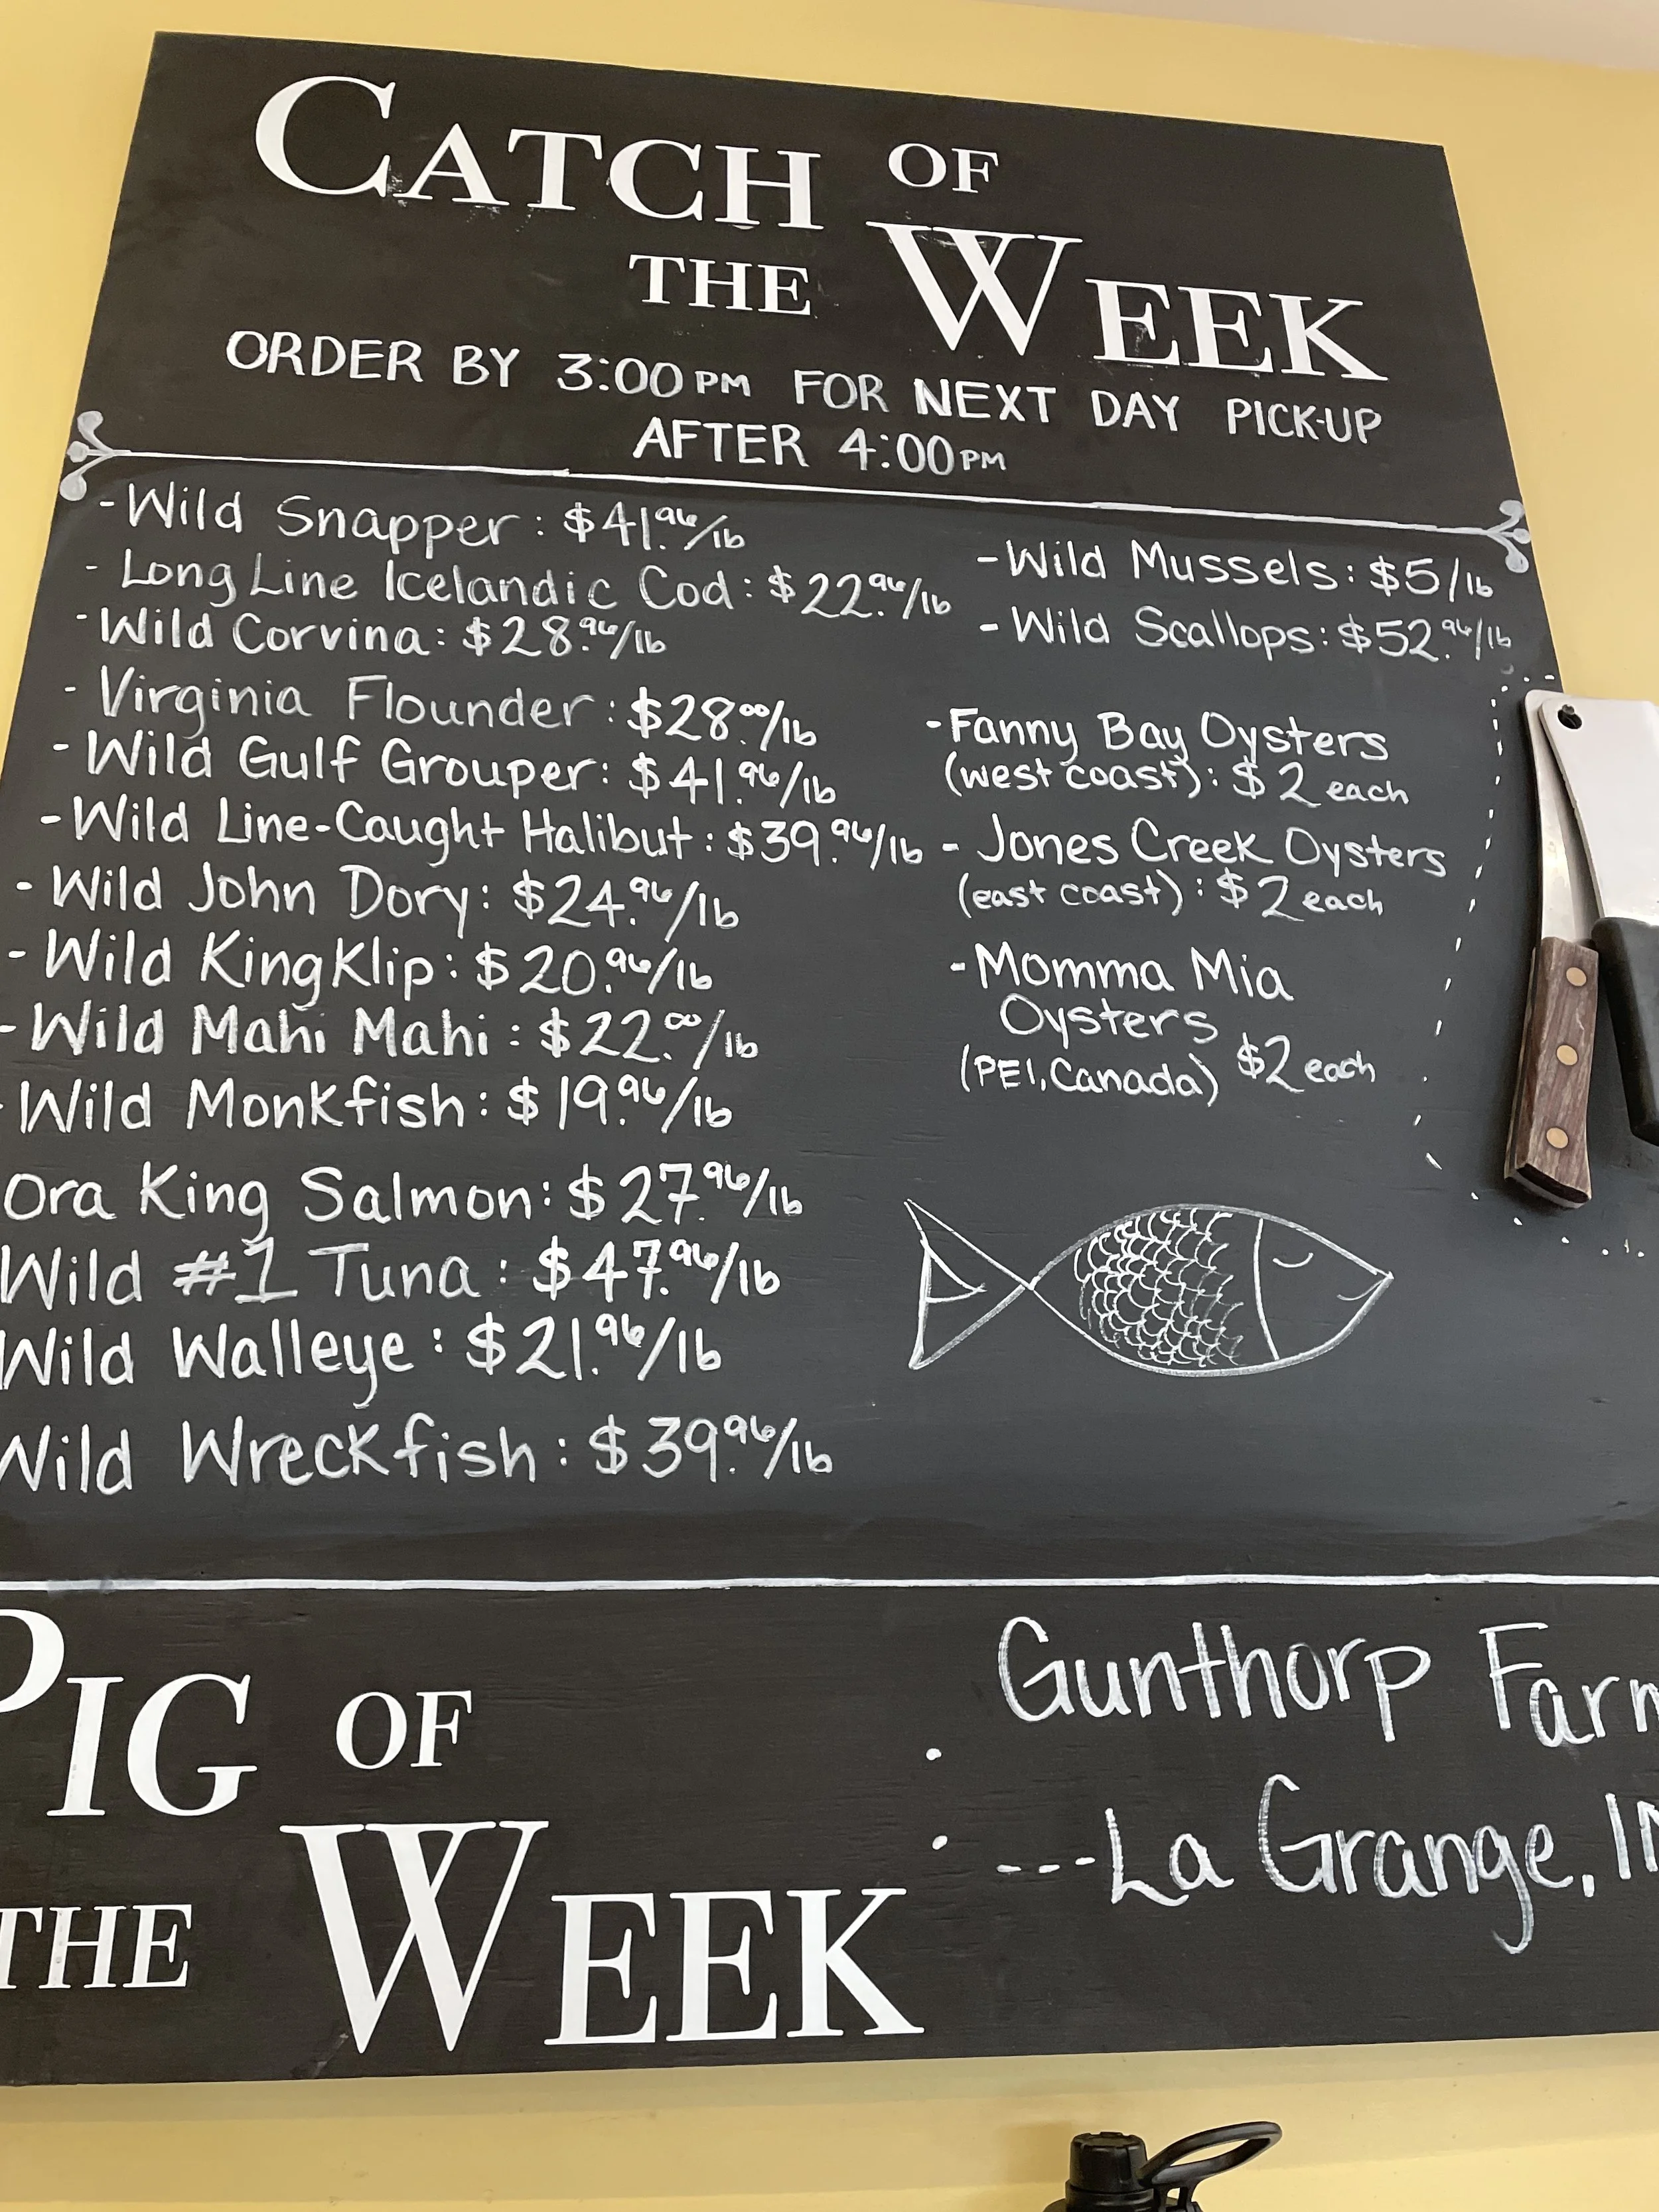 CATCH OF
THE WEEK
ORDER BY 3:00 PM FOR NEXT DAY PICK-UP
AFTER 4:00 PM
- Wild Snapper: $41.96/lb
- Long Line Icelandic Cod: $22.96/lb
- Wild Corvina: $28.96/lb
- Virginia Flounder: $28.00/lb
- Wild Gulf Grouper: $41.96/lb
- Wild Line-Caught Halibut: $39.96/lb
- Wild John Dory: $24.96/lb
- Wild King Klip: $20.96/lb
- Wild Mahi Mahi: $22.00/lb
- Wild Monkfish: $19.96/lb
Ora King Salmon: $27.96/lb
Wild #1 Tuna: $47.96/lb
Wild Walleye: $21.96/lb
Wild Wreckfish: $39.96/lb
- Wild Mussels: $5/lb
- Wild Scallops: $52.96/lb
- Fanny Bay Oysters
(west coast): $2 each
- Jones Creek Oysters
(east coast): $2 each
- Momma Mia
Oysters
(PEI, Canada) $2 each
PIG OF
THE WEEK
Gunthorp Farm
---La Grange, IN